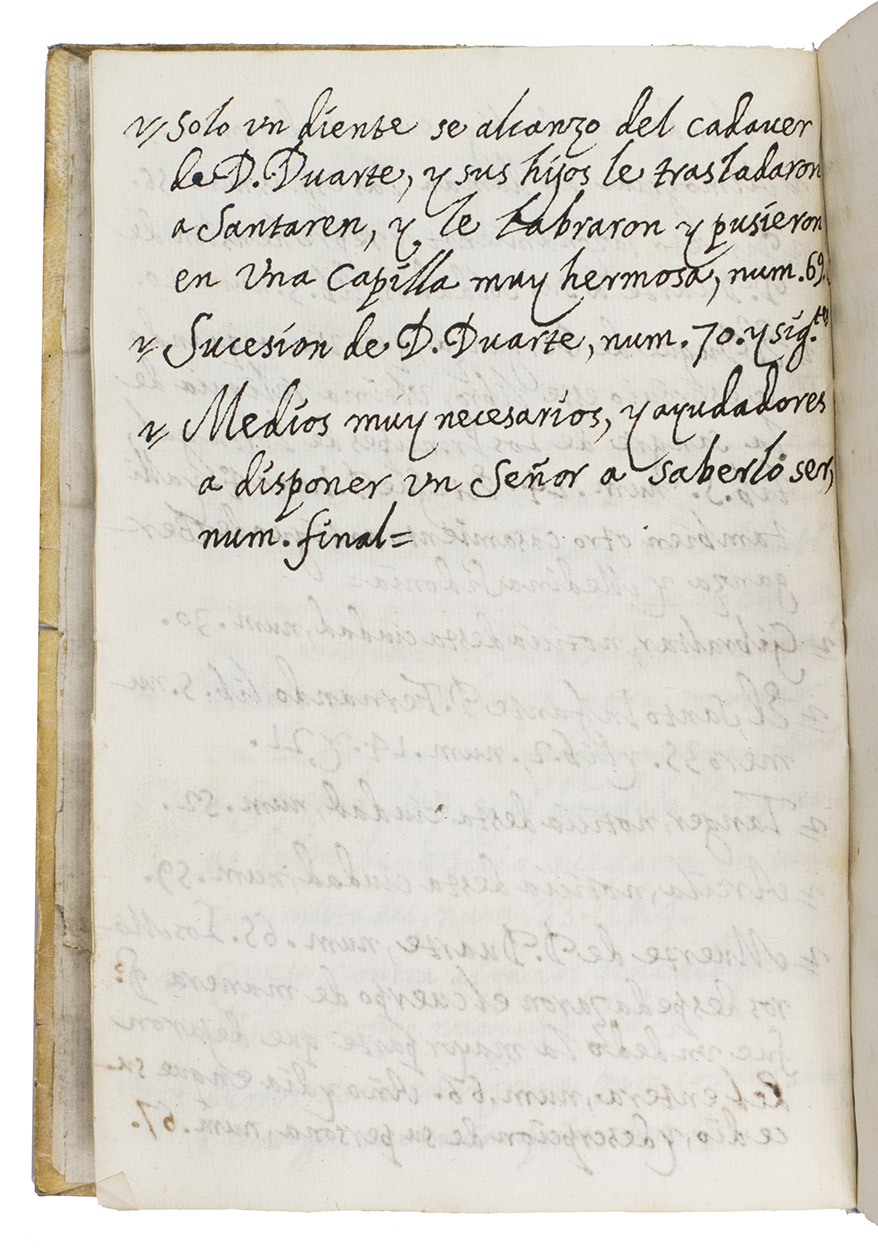 Solo vn diente se alcanzo del cadauer
de D. Duarte, y sus hijos le trasladaron
a Santaren, y le labraron y pusieron
en vna Capilla muy hermosa, num. 69.
Sucesion de D. Duarte, num. 70. y sig.tes
Medios muy necesarios, y ayudadores
a disponer vn Señor a saberlo ser,
num. final=